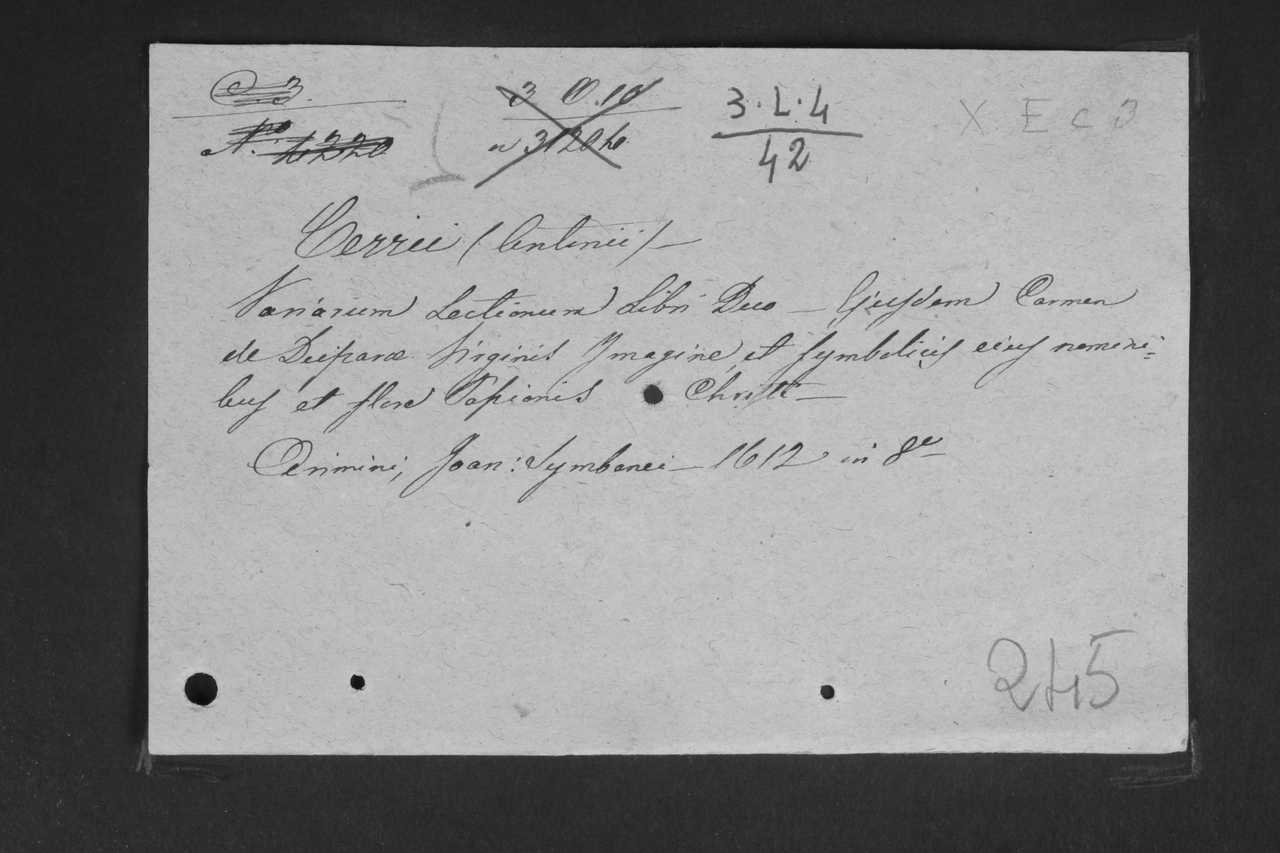 C 3. 3 O.10 3·L·4 X E c 3
N.ro 4220 n 31204 42
Cerrii (Antonii) —
Variarum Lectionum Libri Duo — Ejusdem Carmen
de Deiparæ Virginis Ymagine, et symbolicis eius nomini=
bus et flore Passionis Christi —
Arimini, Joan: Symbenei — 1612 in 8º
245